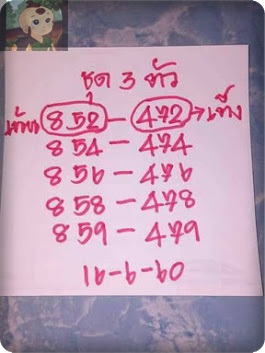 ชุด 3 ตัว
เต้น 852 - 472 → เต็ง
854 - 474
856 - 476
858 - 478
859 - 479
16-6-60